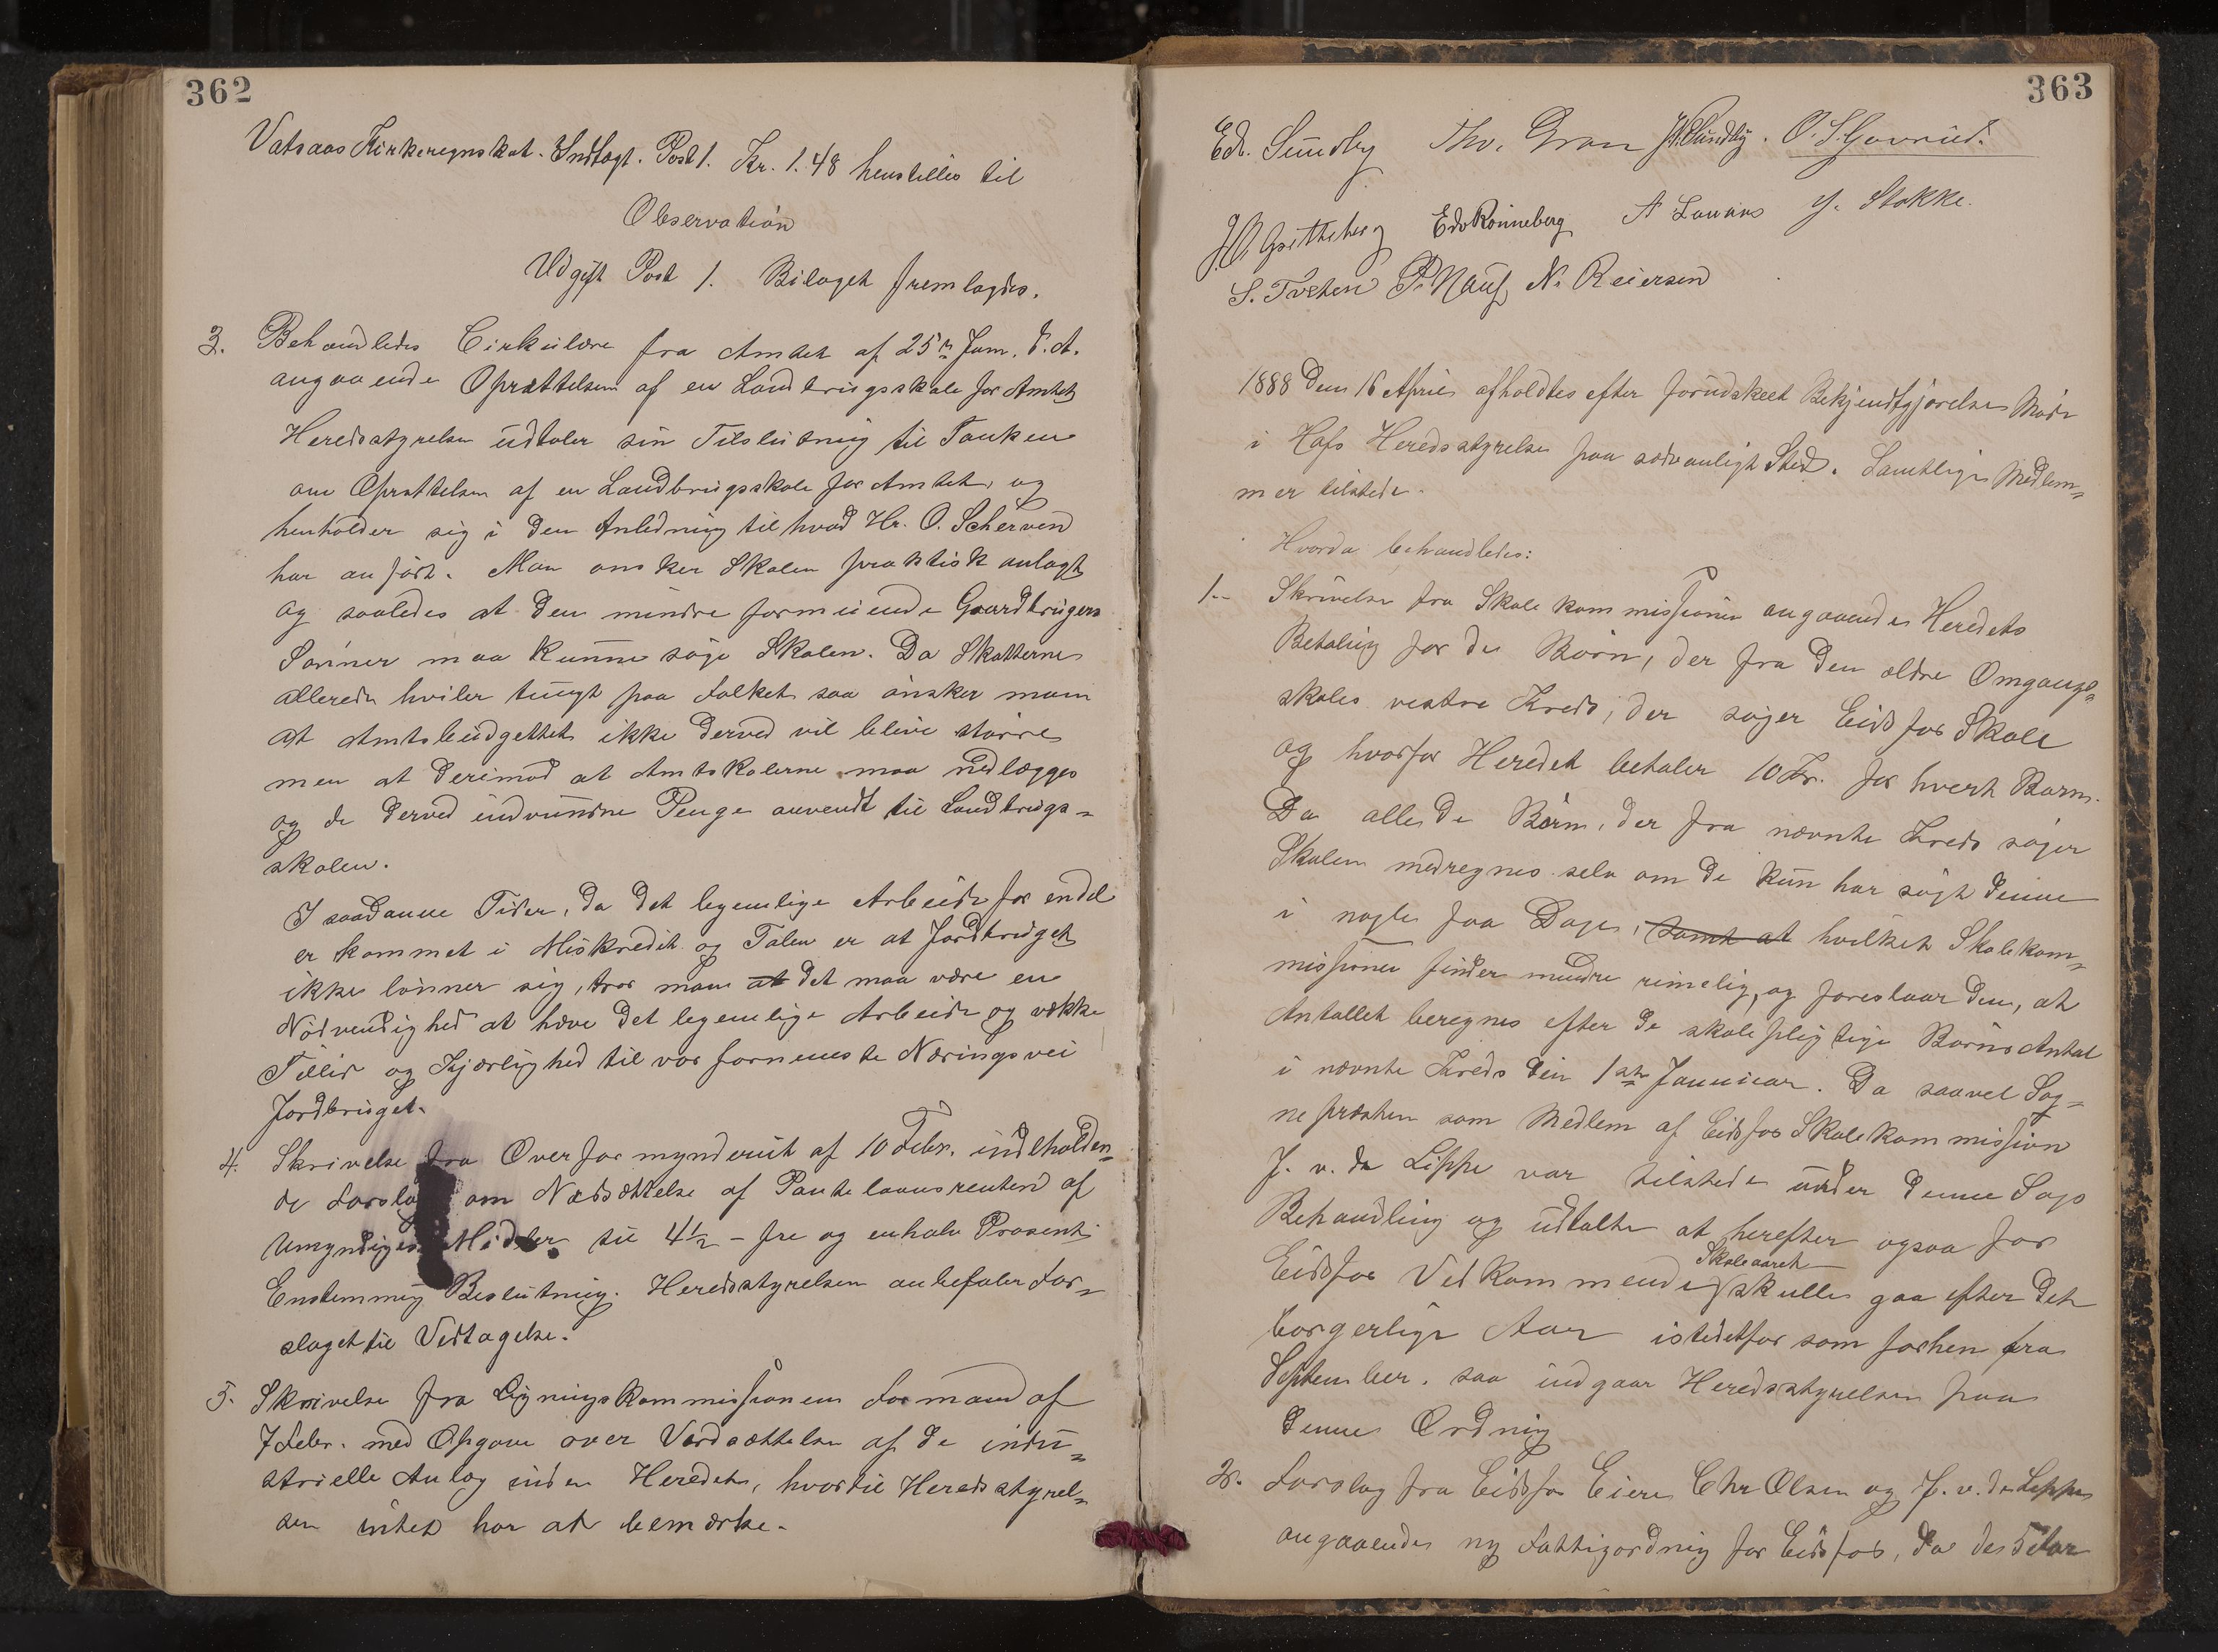 362
Vatsaas Kirkeregnskab. Indtægt. Post 1. Kr. 1.48 henstilles til
Observation
Udgift Post 1. Bilaget fremlagdes.
3. Behandledes Cirkulære fra Amtet af 25de Jan. d. A.
angaaende Oprættelsen af en Landbrugsskole for Amtet
Heredsstyrelsen udtaler sin Tilslutning til Tanken
om Oprættelsen af en Landbrugsskole for Amtet, og
henholder sig i den Anledning til hvad Hr. O. Scherven
har anført. Man ønsker Skolen praktisk anlagt
og saaledes at den mindre formuende Gaardbrugers
Sønner maa kunne søge Skolen. Da Skatterne
allerede hviler tungt paa Folket saa ønsker man
at Amtsbudgettet ikke derved vil blive større
men at derimod at Amtskolerne maa nedlægges
og de derved indvundne Penge anvendt til Landbrugs-
skolen.
I saadanne Tider, da det legemlige Arbeide for endel
er kommet i Miskredit og Talen er at Jordbruget
ikke lønner sig, tror man at det maa være en
Nødvendighed at hæve det legemlige Arbeide og vække
Tillid og Kjærlighed til vor fornemste Næringsvei
Jordbruget.
4. Skrivelse fra Overformynderiet af 10 Febr. indeholden-
de Forslag om Nedsættelse af Pantelaansrenten af
Umyndiges Midler til 4½ - fire og enhalv Prosent
Enstemmig Beslutning. Heredsstyrelsen anbefaler For-
slaget til Vedtagelse.
5. Skrivelse fra Ligningskommissionens Formand af
7 Febr. med Opgave over Værdsættelsen af de indu-
strielle Anlæg inden Heredet, hvortil Heredsstyrel-
sen intet har at bemærke.
363
Edv. Sundby Thv. Gran H. Sundby. O. S. Gavrud.
Edv Rønneberg A Lauans J. Stokke.
S. Tveten P. Nauf N. Reiersen
1888 den 16 April afholdtes efter forudskeet Bekjendtgjørelse Møde
i Hofs Heredsstyrelse paa sædvanligt Sted. Samtlige Medlem-
mer tilstede.
Hvorda behandledes:
1. Skrivelse fra Skolekommissionen angaaende Heredets
Betaling for de Børn, der fra den ældre Omgangs-
skoles vestre Kreds, der søger Eidsfos Skole
og hvorfor Heredet betaler 10 Kr. for hvert Barn.
Da alle de Børn, der fra nævnte Kreds søger
Skolen medregnes selv om de kun har søgt denne
i nogle faa Dage, samt at hvilket Skolekom-
missionen finder mindre rimelig, og foreslaar den, at
Antallet beregnes efter de skolepligtige Børns Antal
i nævnte Kreds den 1ste Januar. Da saavel Sog-
nepræsten som Medlem af Eidsfos Skolekommission
J. v. da Lippe var tilstede under denne Sags
Behandling og udtalte at herefter ogsaa for
Skoleaaret
Eidsfos Vedkommende skulle gaa efter det
borgerlige Aar istedetfor som forhen fra
September, saa indgaar Heredsstyrelsen paa
denne Ordning
2. Forslag fra Eidsfos Eiere Chr Olsen og J. v. da Lippe
angaaende ny Fattigordning for Eidsfos, da de 5 Aar